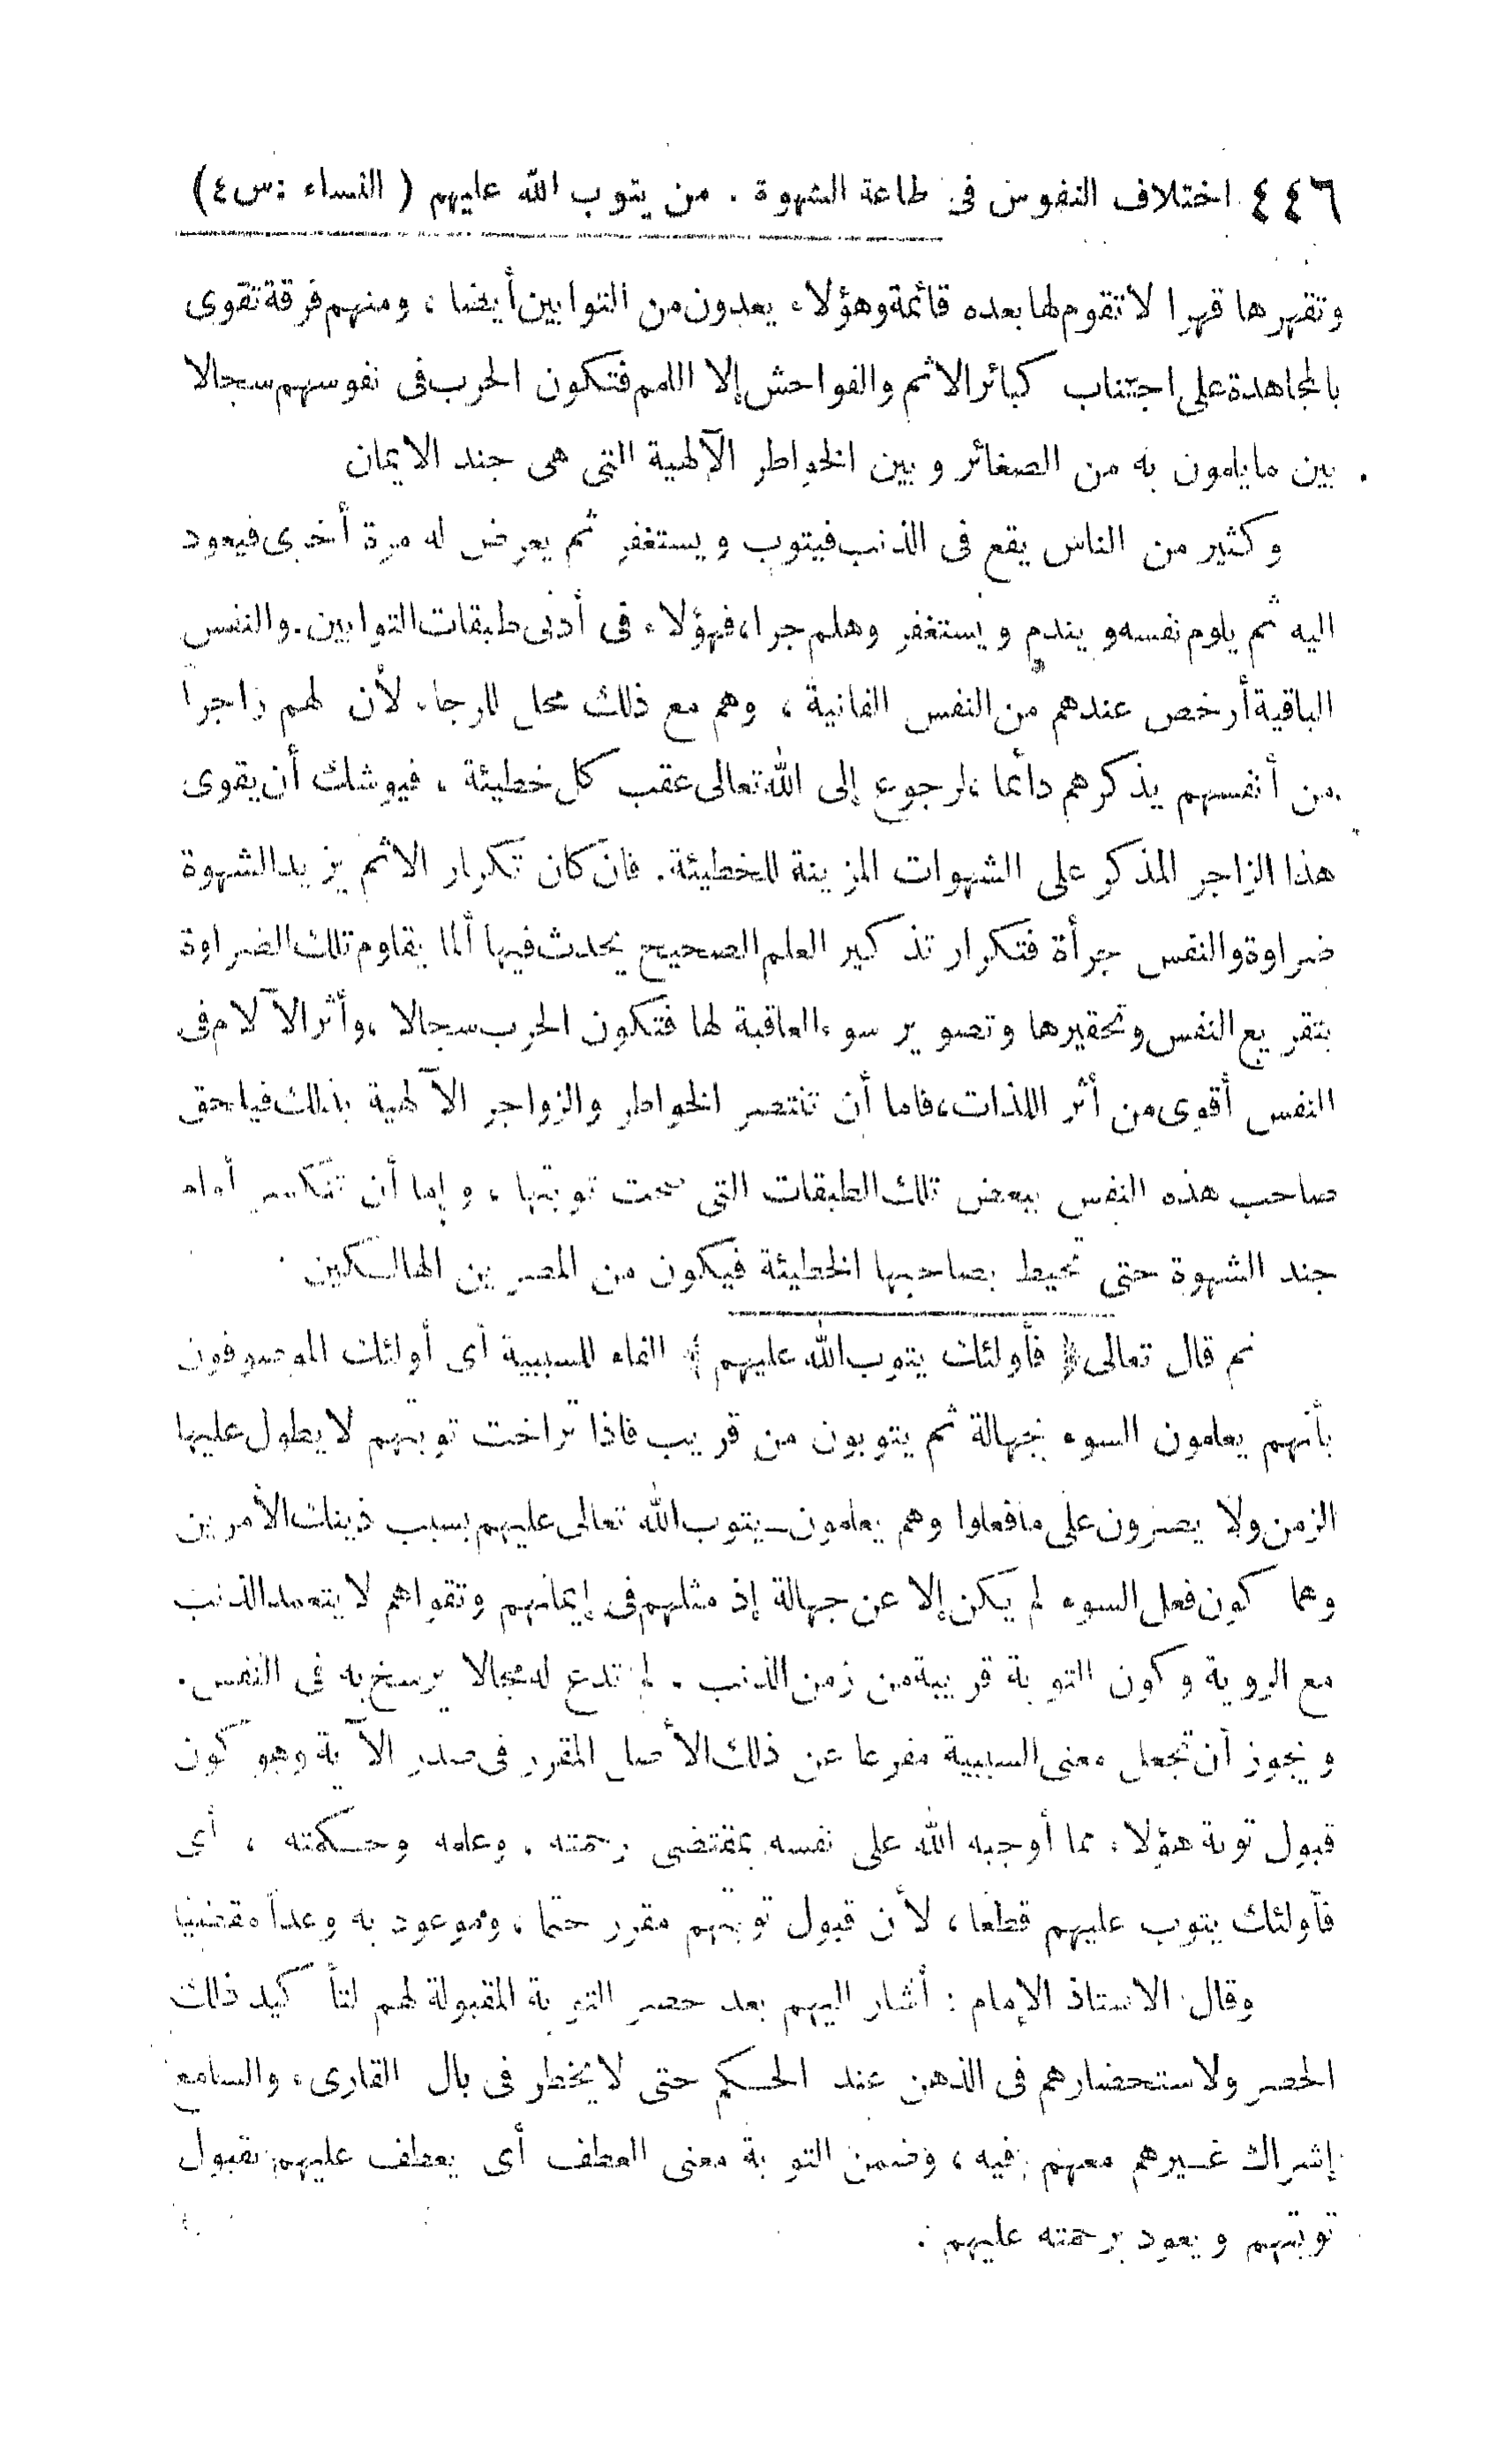 ٤٤٦ اختلاف النفوس فى طاعة الشهوة . من يتوب الله عليهم ( النساء : س٤)
وتقهرها قهرا لا تقوم لها بعده قائمة وهؤلاء يعدون من التوابين أيضا ، ومنهم فرقة تقوى
بالمجاهدة على اجتناب كبائر الاثم والفواحش إلا اللمم فتكون الحرب فى نفوسهم سجالا
بين ما يلمون به من الصغائر و بين الخواطر الآلهية التى هى جند الايمان
وكثير من الناس يقع فى الذنب فيتوب ويستغفر ثم يعرض له مرة أخرى فيعود
اليه ثم يلوم نفسه ويندم ويستغفر وهلم جرا، فهؤلاء فى أدنى طبقات التوابين . والنفس
الباقية أرخص عندهم من النفس الفانية ، وهم مع ذلك محل للرجاء لأن لهم زاجرا
من أنفسهم يذكرهم دائما بالرجوع إلى الله تعالى عقب كل خطيئة ، فيوشك أن يقوى
هذا الزاجر المذكر على الشهوات المزينة للخطيئة . فان كان تكرار الاثم يزيد الشهوة
ضراوة والنفس جرأة فتكرار تذكير العلم الصحيح يحدث فيها ألما يقاوم تلك الضراوة
بتقريع النفس وتحقيرها وتصوير سوء العاقبة لها فتكون الحرب سجالا ، وأثر الآلام فى
النفس أقوى من أثر اللذات، فاما أن تنتصر الخواطر والزواجر الآلهية بذلك فيلحق
صاحب هذه النفس ببعض تلك الطبقات التى صحت توبتها ، و إما أن تنكسر أمام
جند الشهوة حتى تحيط بصاحبها الخطيئة فيكون من المصرين الهالكين
ثم قال تعالى ﴿ فأولئك يتوب الله عليهم ﴾ الفاء للسببية أى أولئك الموصوفون
بأنهم يعملون السوء بجهالة ثم يتوبون من قريب فاذا تراخت توبتهم لا يطول عليها
الزمن ولا يصرون على ما فعلوا وهم يعلمون ــ يتوب الله تعالى عليهم بسبب ذينك الأمرين
وهما كون فعل السوء لم يكن إلا عن جهالة إذ مثلهم فى إيمانهم وتقواهم لا يتعمد الذنب
مع الروية وكون التوبة قريبة من زمن الذنب . لم تدع له مجالا يرسخ به فى النفس .
ويجوز أن تجعل معنى السببية مفرعا عن ذلك الأصل المقرر فى صدر الآية وهو كون
قبول توبة هؤلاء مما أوجبه الله على نفسه بمقتضى رحمته ، وعلمه وحكمته ، أى
فأولئك يتوب عليهم قطعا ، لأن قبول توبتهم مقرر حتما ، وموعود به وعداً مقضيا
وقال الاستاذ الإمام : أشار اليهم بعد حصر التوبة المقبولة لهم لتأكيد ذلك
الحصر ولاستحضارهم فى الذهن عند الحكم حتى لا يخطر فى بال القارىء والسامع
إشراك غيرهم معهم فيه ، وضمن التوبة معنى العطف أى يعطف عليهم بقبول
توبتهم ويعود برحمته عليهم .